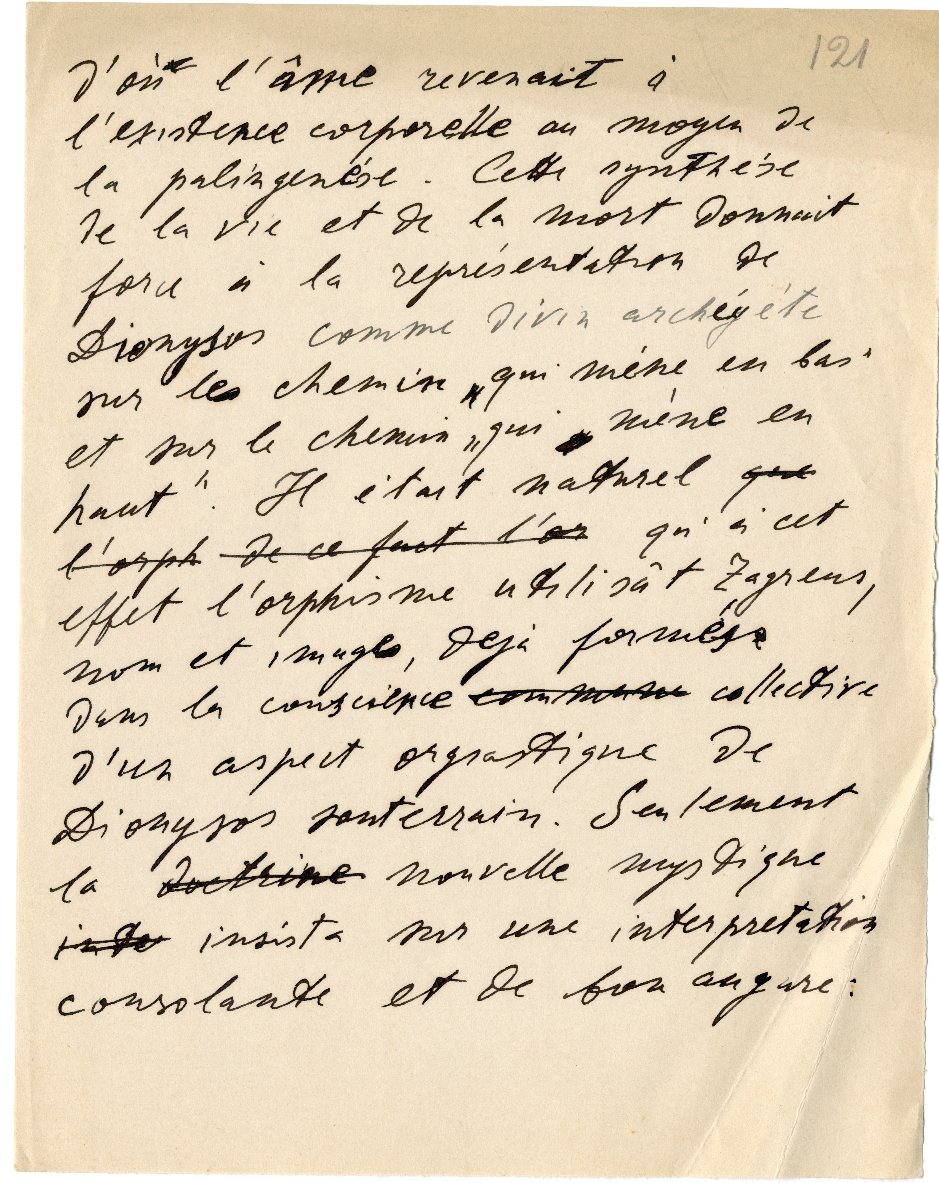 121
d'où l'âme revenait à
l'existence corporelle au moyen de
la palingenése. Cette synthése
de la vie et de la mort donnait
force à la représentation de
Dionysos comme divin archégéte
sur le chemin „qui méne en bas"
et sur le chemin „qui méne en
haut". Il était naturel que
l'orph de ce fait l'or qu'à cet
effet l'orphisme utilisât Zagreus,
nom et image, dejà formés
dans la conscience commune collective
d'un aspect orgiastique de
Dionysos souterrain. Seulement
la doctrine nouvelle mystique
inte insista sur une interpretation
consolante et de bon augure: